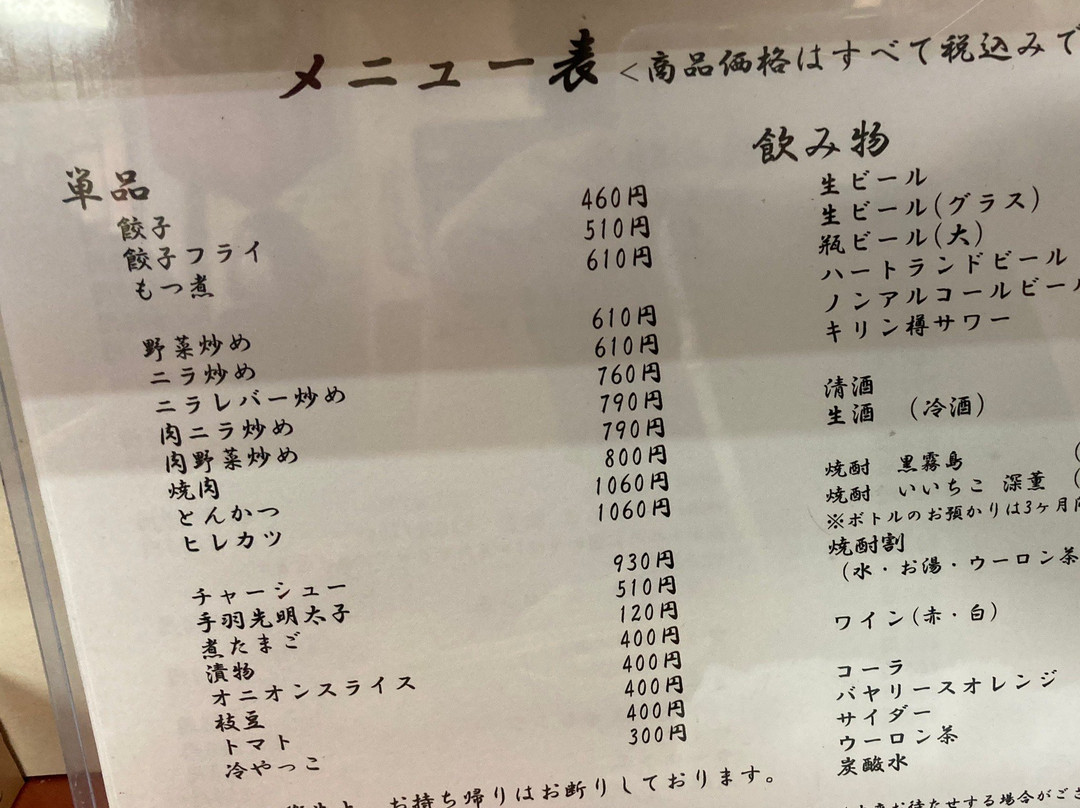 メニュー表 <商品価格はすべて税込みで
単品
餃子 460円
餃子フライ 510円
もつ煮 610円
野菜炒め 610円
ニラ炒め 610円
ニラレバー炒め 760円
肉ニラ炒め 790円
肉野菜炒め 790円
焼肉 800円
とんかつ 1060円
ヒレカツ 1060円
チャーシュー 930円
手羽先明太子 510円
煮たまご 120円
漬物 400円
オニオンスライス 400円
枝豆 400円
トマト 400円
冷やっこ 300円
お持ち帰りはお断りしております。
飲み物
生ビール
生ビール(グラス)
瓶ビール(大)
ハートランドビール
ノンアルコールビール
キリン樽サワー
清酒
生酒 (冷酒)
焼酎 黒霧島 (
焼酎 いいちこ 深薫 (
※ボトルのお預かりは3ヶ月
焼酎割
(水・お湯・ウーロン茶
ワイン(赤・白)
コーラ
バヤリースオレンジ
サイダー
ウーロン茶
炭酸水
お待たせする場合がござ